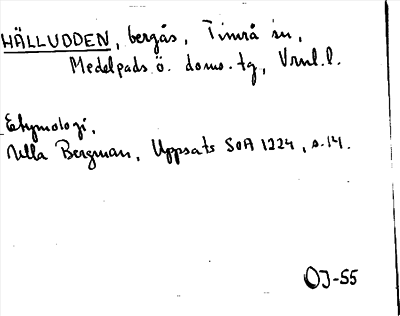 HÄLLUDDEN, bergås, Timrå sn,
Medelpads ö. doms.tg, Vrnl.l.
Etymologi,
Ulla Bergman, Uppsats SOA 1224, s.14.
OJ-55